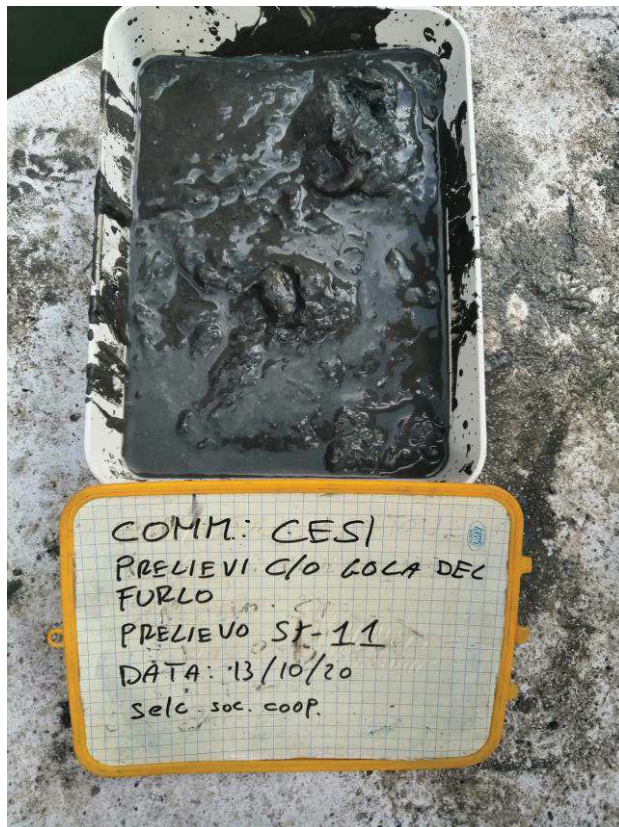 COMM.: CESI
PRELIEVI C/O GOLA DEL
FURLO
PRELIEVO SX-11
DATA: 13/10/20
selc soc. coop.